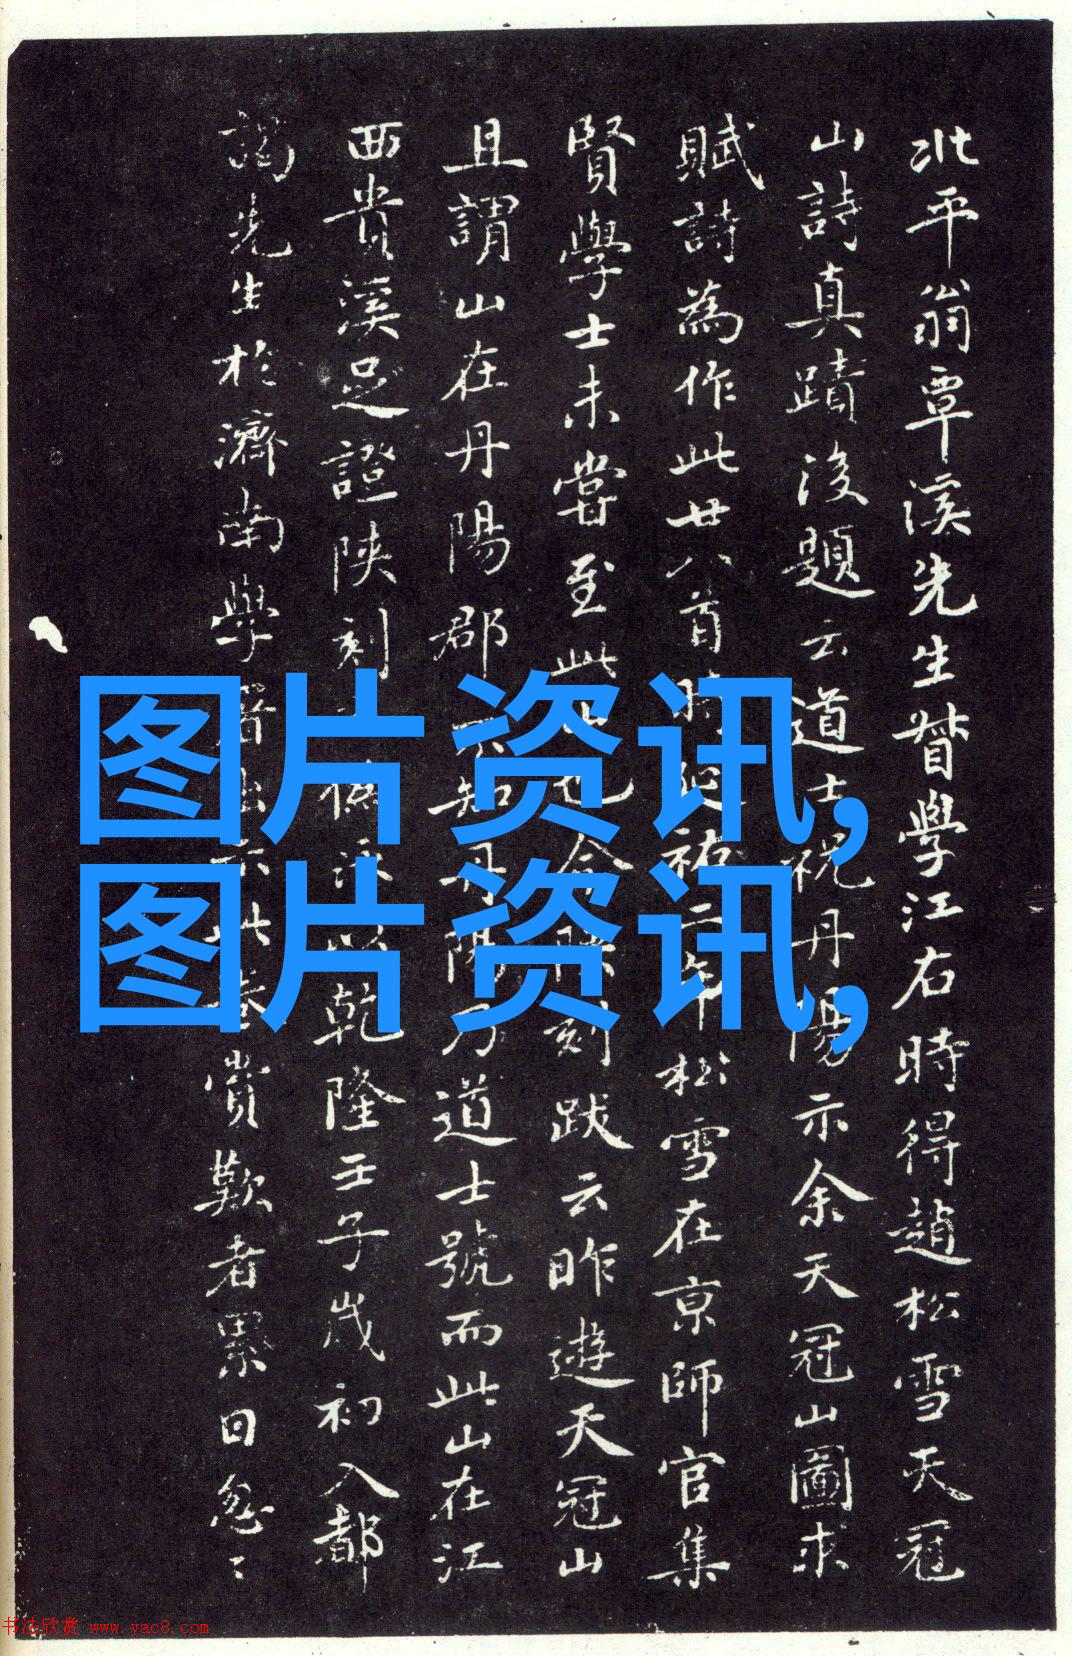 北平翁覃溪先生督學江右時得趙松雪天冠
山詩真蹟後題云道士祝丹陽示余天冠山圖求
賦詩為作此廿八首時延祐二年松雪在京師官集
賢學士未嘗至此也陜刻跋云昨遊天冠山
且謂山在丹陽郡不知丹陽乃道士號而此山在江
西貴溪足證陜刻以乾隆壬子歲初入都
謁先生於濟南學署出此卷賞歎者累日忽〻
图片资讯,
图片资讯,
书法欣赏 www.yac8.com